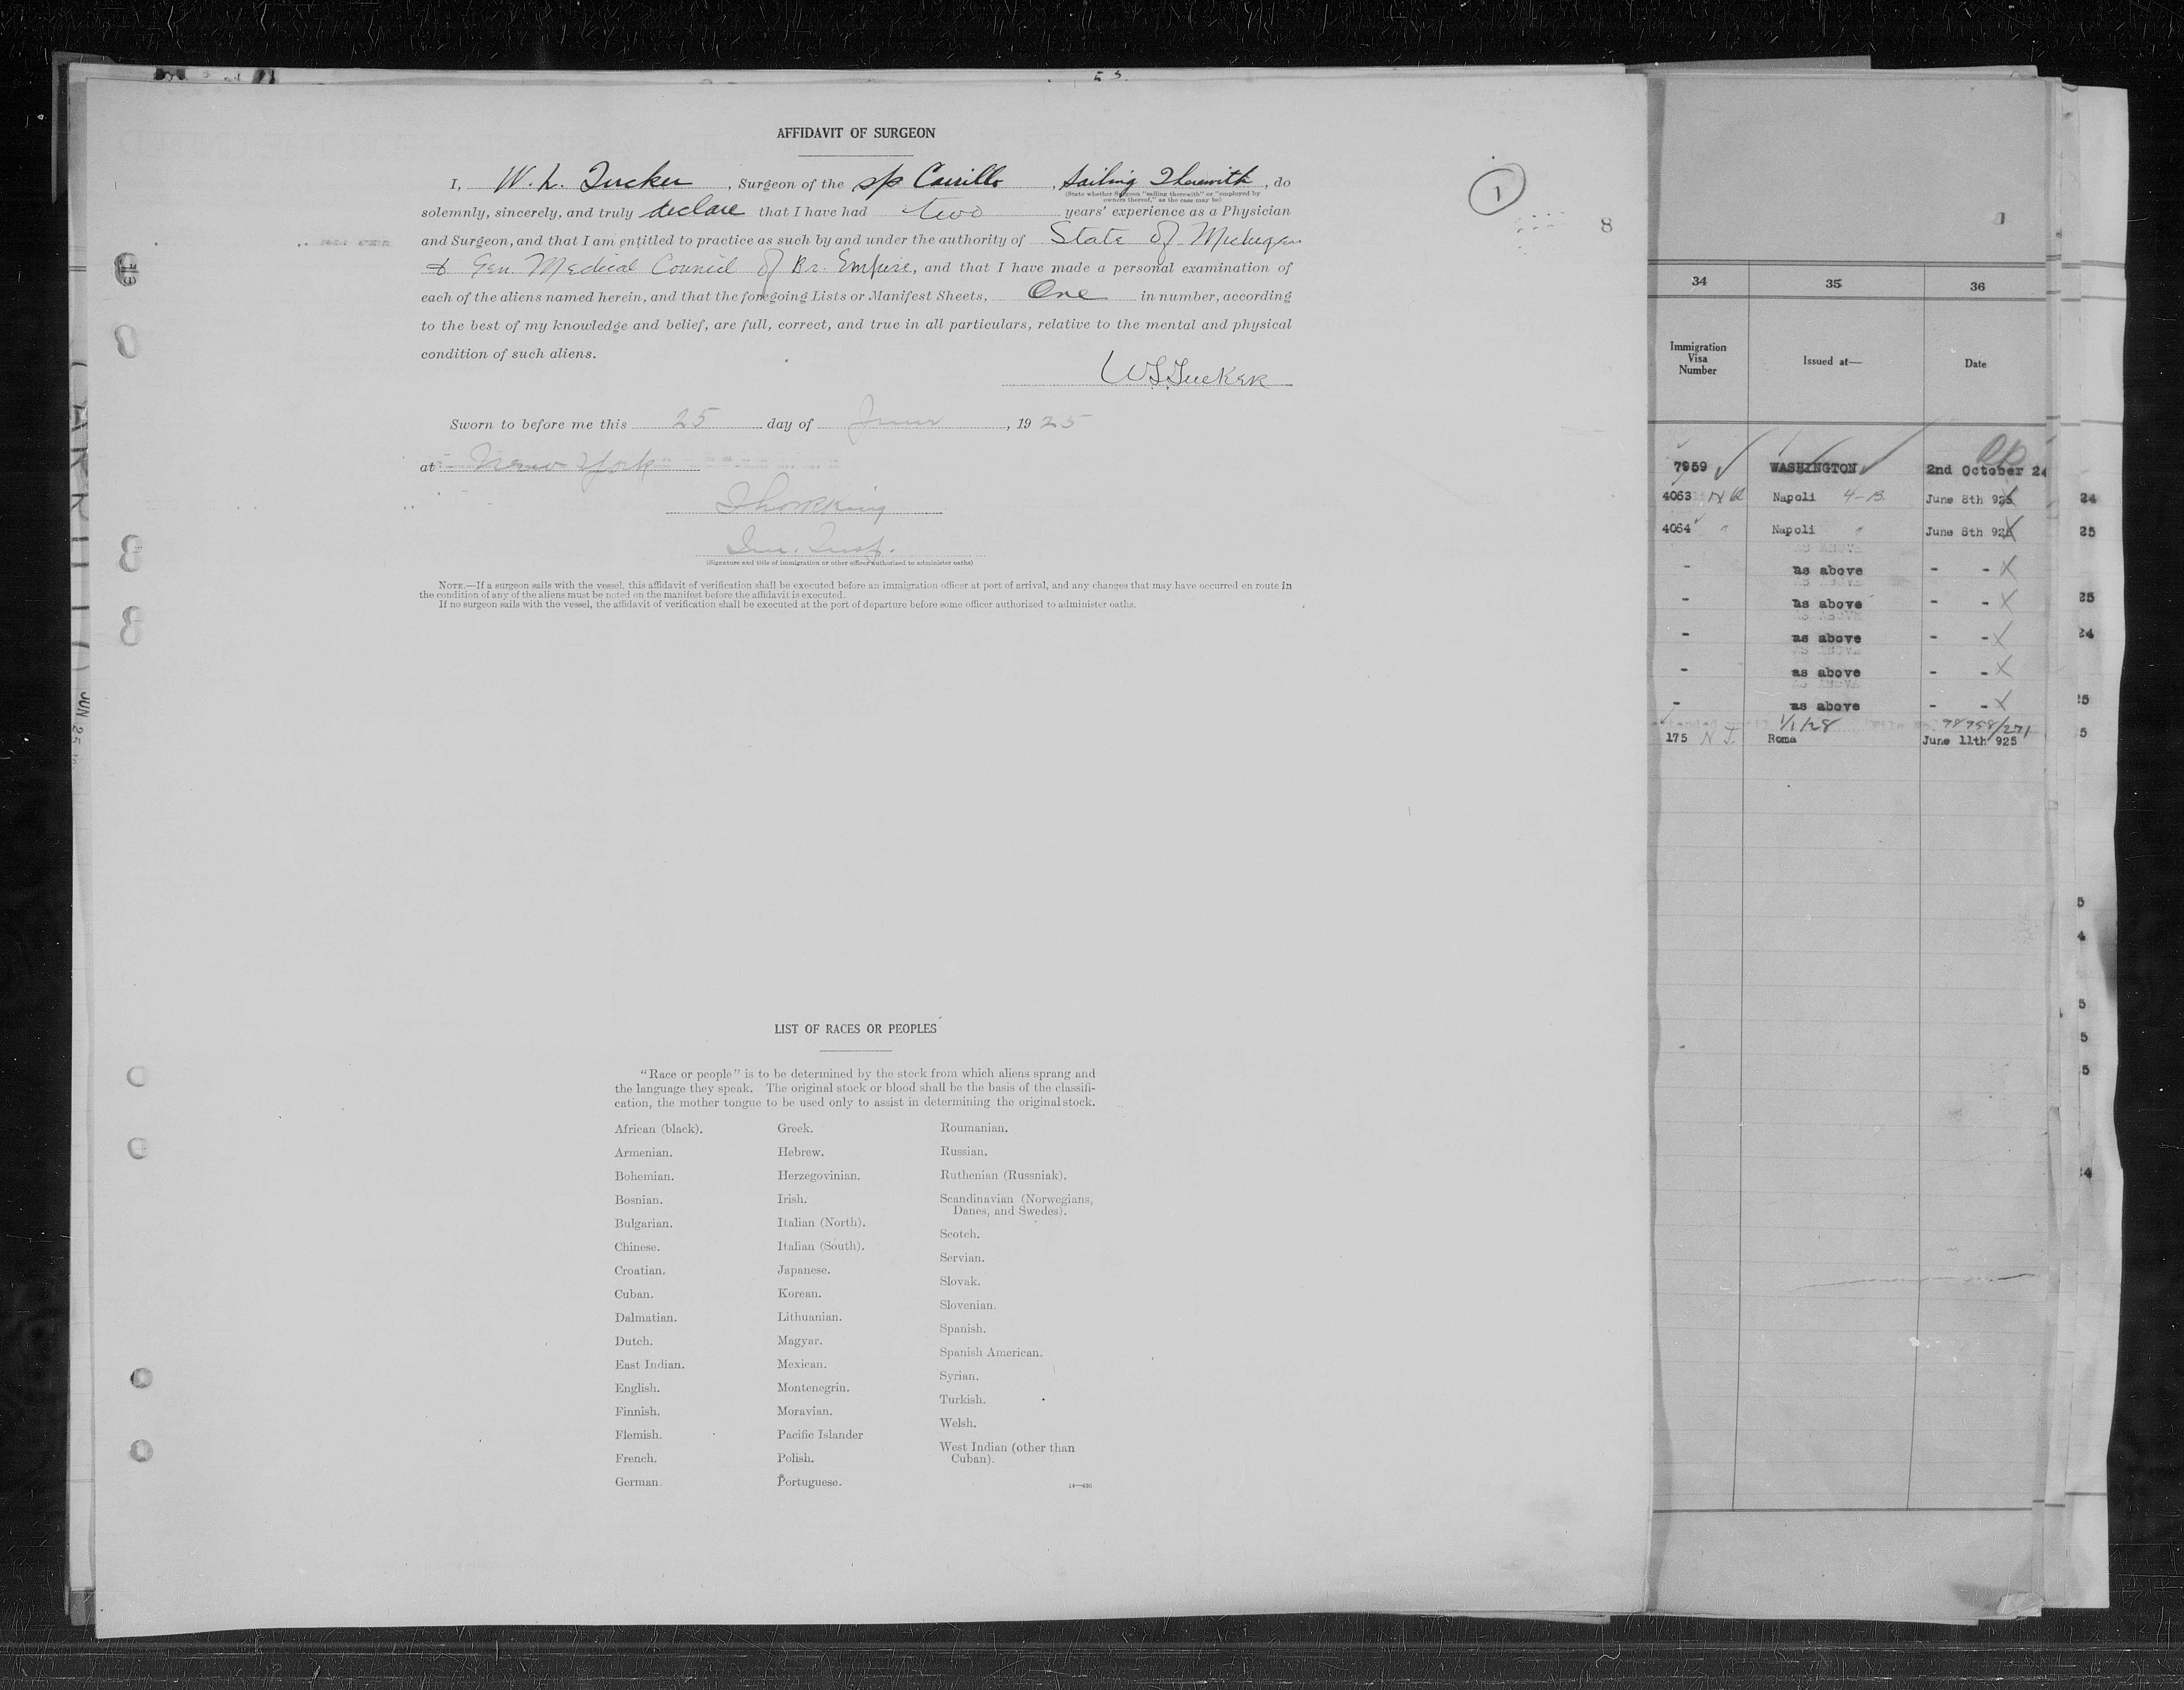 AFFIDAVIT OF SURGEON
I, W. L. Tucker, Surgeon of the s/s Carrillo, Sailing Therewith, do
(State whether Surgeon "sailing therewith" or "employed by
owners thereof," as the case may be)
solemnly, sincerely, and truly declare that I have had two years' experience as a Physician
and Surgeon, and that I am entitled to practice as such by and under the authority of State of Michigan
& Gen. Medical Council of Br. Empire, and that I have made a personal examination of
each of the aliens named herein, and that the foregoing Lists or Manifest Sheets, One in number, according
to the best of my knowledge and belief, are full, correct, and true in all particulars, relative to the mental and physical
condition of such aliens.
W L Tucker
Sworn to before me this 25 day of June, 1925
at New York
(Signature and title of immigration or other officer authorized to administer oaths)
NOTE.—If a surgeon sails with the vessel, this affidavit of verification shall be executed before an immigration officer at port of arrival, and any changes that may have occurred en route in
the condition of any of the aliens must be noted on the manifest before the affidavit is executed.
If no surgeon sails with the vessel, the affidavit of verification shall be executed at the port of departure before some officer authorized to administer oaths.
1
8
LIST OF RACES OR PEOPLES
"Race or people" is to be determined by the stock from which aliens sprang and
the language they speak. The original stock or blood shall be the basis of the classifi-
cation, the mother tongue to be used only to assist in determining the original stock.
African (black).
Armenian.
Bohemian.
Bosnian.
Bulgarian.
Chinese.
Croatian.
Cuban.
Dalmatian.
Dutch.
East Indian.
English.
Finnish.
Flemish.
French.
German.
Greek.
Hebrew.
Herzegovinian.
Irish.
Italian (North).
Italian (South).
Japanese.
Korean.
Lithuanian.
Magyar.
Mexican.
Montenegrin.
Moravian.
Pacific Islander
Polish.
Portuguese.
Roumanian.
Russian.
Ruthenian (Russniak).
Scandinavian (Norwegians,
Danes, and Swedes).
Scotch.
Servian.
Slovak.
Slovenian.
Spanish.
Spanish American.
Syrian.
Turkish.
Welsh.
West Indian (other than
Cuban).
14—430
JUN 25
34 35 36
Immigration
Visa
Number
Issued at—
Date
7959 WASHINGTON 2nd October 24
4063 Napoli 4-B June 8th 925
4064 " Napoli " June 8th 925
- as above - -
- as above - -
- as above - -
- as above - -
- as above - -
1/1/28 98758/271
175 N J. Roma June 11th 925
24
25
25
24
5
5
5
4
5
5
5
4